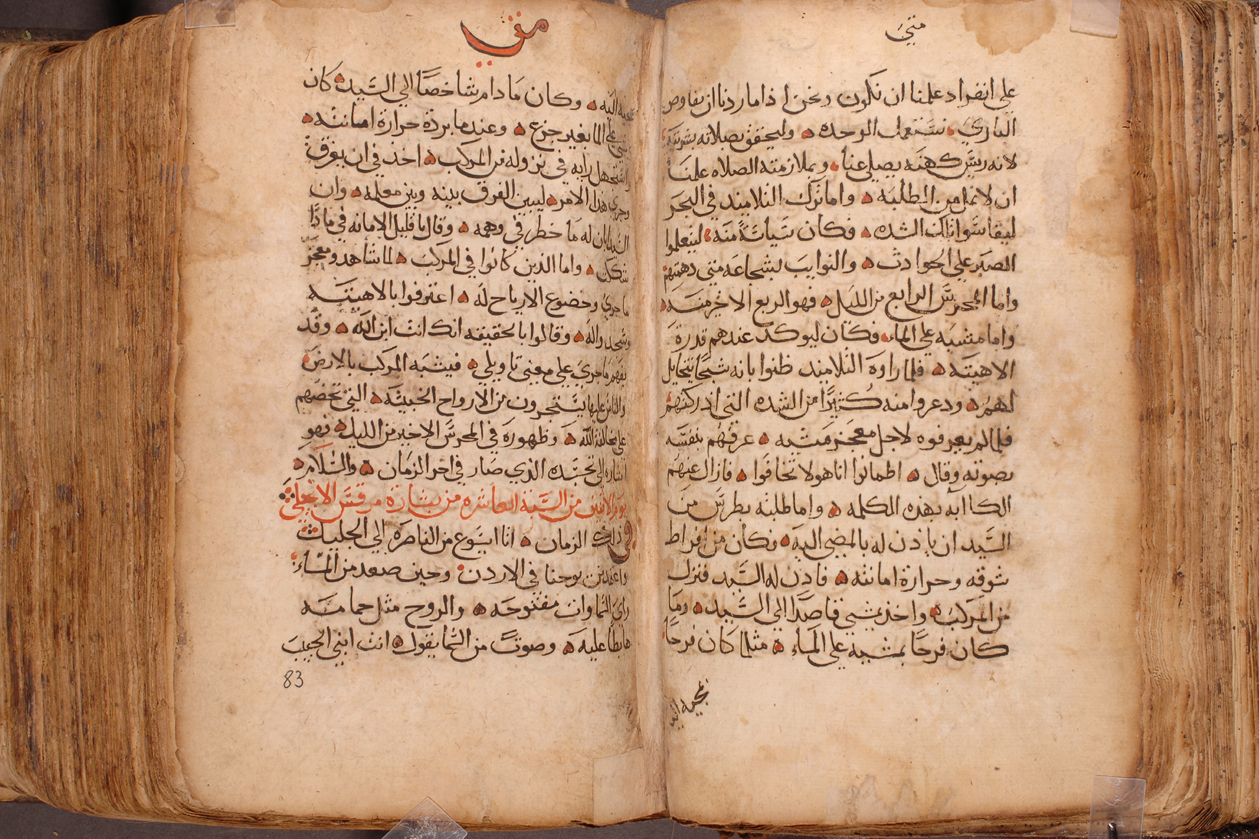 متى
على انفراد علمنا ان نكون ونحن اذا ما اردنا ان نفاوض
الباري نستعمل الوحده وليحقق بصلاته بشريته
لانه ريس كهنه يصلي عنا وبملازمته الصلاه علمنا
ان لا نمل من الطلبه واما ترك التلاميذ في البحر
ليقاسوا تلك الشده فكان سياسة منه ليتعلموا
الصبر على الحوادث والنوايب بشجاعه متى دهمتهم
واما المحرس الرابع من الليل فهو الربع الاخر منه
واما مشيه على الماء فكان ليوكد عندهم قدرة
الاهيته فلما راوه التلاميذ ظنوا بانه شبحا تخايل
لهم ودعروا منه كثيرا من الشده التي ادركتهم
فلما لم يعرفوه لاجل معجز مشيه عرفهم بنفسه
بصوته وقال اطمانوا انا هو لا تخافوا فازال عنهم
الكاابه بهذه الكلمه واما طلبة بطرس من
السيد ان ياذن له بالمضي اليه فكان من افراط
شوقه وحرارة امانته فاذن له السيد فنزل
من المركب واخذ يمشي قاصدا الى السيد وما
كان فرحا بمشيه على الماء مثلما كان فرحا
مرقس
وكان ما دام شاخصا الى السيد كان
على الما بغير جزع وعندما برده حرارة امانته
في نزوله من المركب اخذ في ان يغرق
وجرى هذا الامر ليبين الفرق بينه وبين معلمه وان
له ما خطر في وهمه وقال يا قليل الامانه في ماذا
شككت واما الذين كانوا في المركب لما شاهدو معجز
ما جرى وخضوع الارياح له اعترفوا بالاهيته
وسجدوا له وقالوا بالحقيقه انك انت ابن الله وقد
يفهم ما جرى على معنى تاويلي فيشبه المركب بالارض
والناس عليها يستجرون من الارواح الخبيثه التي تحضهم
على مخالفة الله وظهوره في المحرس الاخير من الليل فهو
اشاره الى تجسده الذي صار في اخر الزمان والسلام
يوم الاثنين من السبه العاشره من بشارة مرقس الانجيلي
في ذلك الزمان اتا ايسوع من الناصره الى الجليل
واعتمد من يوحنا في الاردن وحين صعد من الماء
راى السماوات مفتوحه والروح مثل حمامه
هابطا عليه وصوتا من السما يقول انت ابني الحبيب
83